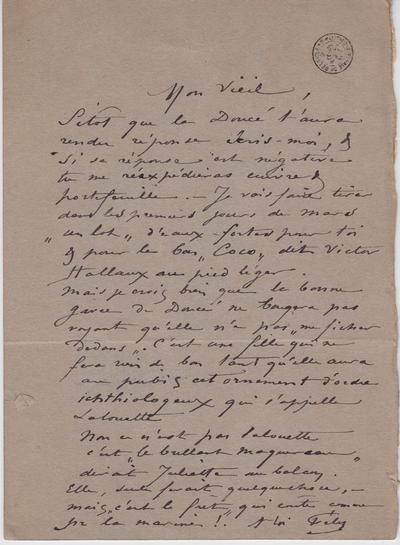 Mon Vieil,
Sitôt que la Doucé t'aura
rendu réponse écris-moi, &
si sa réponse est négative
tu me réexpédieras cuivre &
portefeuille. — Je vais faire tirer
dans les premiers jours de mars
„un lot" d'eaux-fortes pour toi
& pour le bon „Coco" dit Victor
Hallaux au pied léger.
Mais je crois bien que la bonne
garce de Doucé ne bougera pas
voyant qu'elle n'a pas „me ficher
dedans". C'est une fille qui ne
fera rien de bon tant qu'elle aura
au pubis cet ornement d'ordre
ichthiologeux qui s'appelle
Lalouette
Non ce n'est pas l'alouette
c'est „le bullant maquereau"
dirait Juliette au balcon.
Elle, seule ferait quelque chose, —
mais „c'est le fret" qui coûte comme
la marine !!